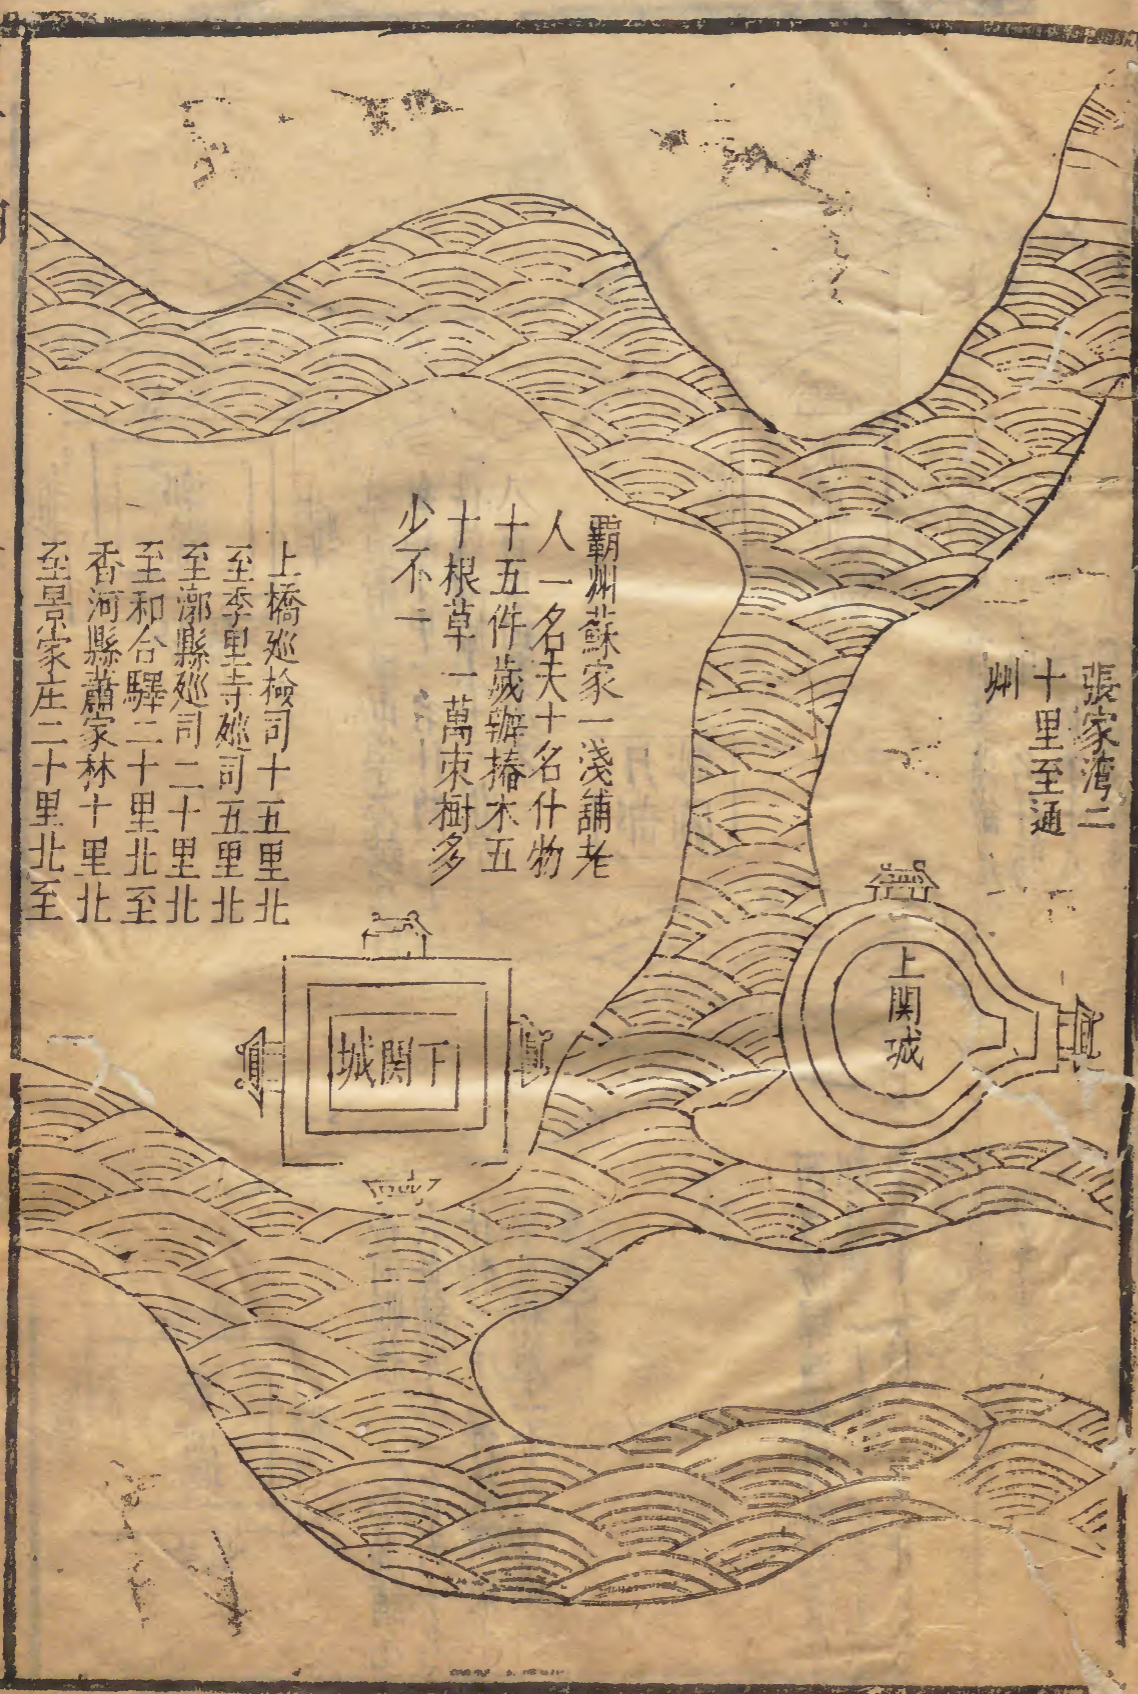 張家湾二
十里至通
州
上関城
覇州蘇家一淺舖老
人一名夫十名什物
十五件歲辦椿木五
十根草一萬束樹多
少不一
下関城
上橋廵檢司十五里北
至季里寺廵司五里北
至漷縣廵司二十里北
至和合驛二十里北至
香河縣蕭家林十里北
至景家庄二十里北至